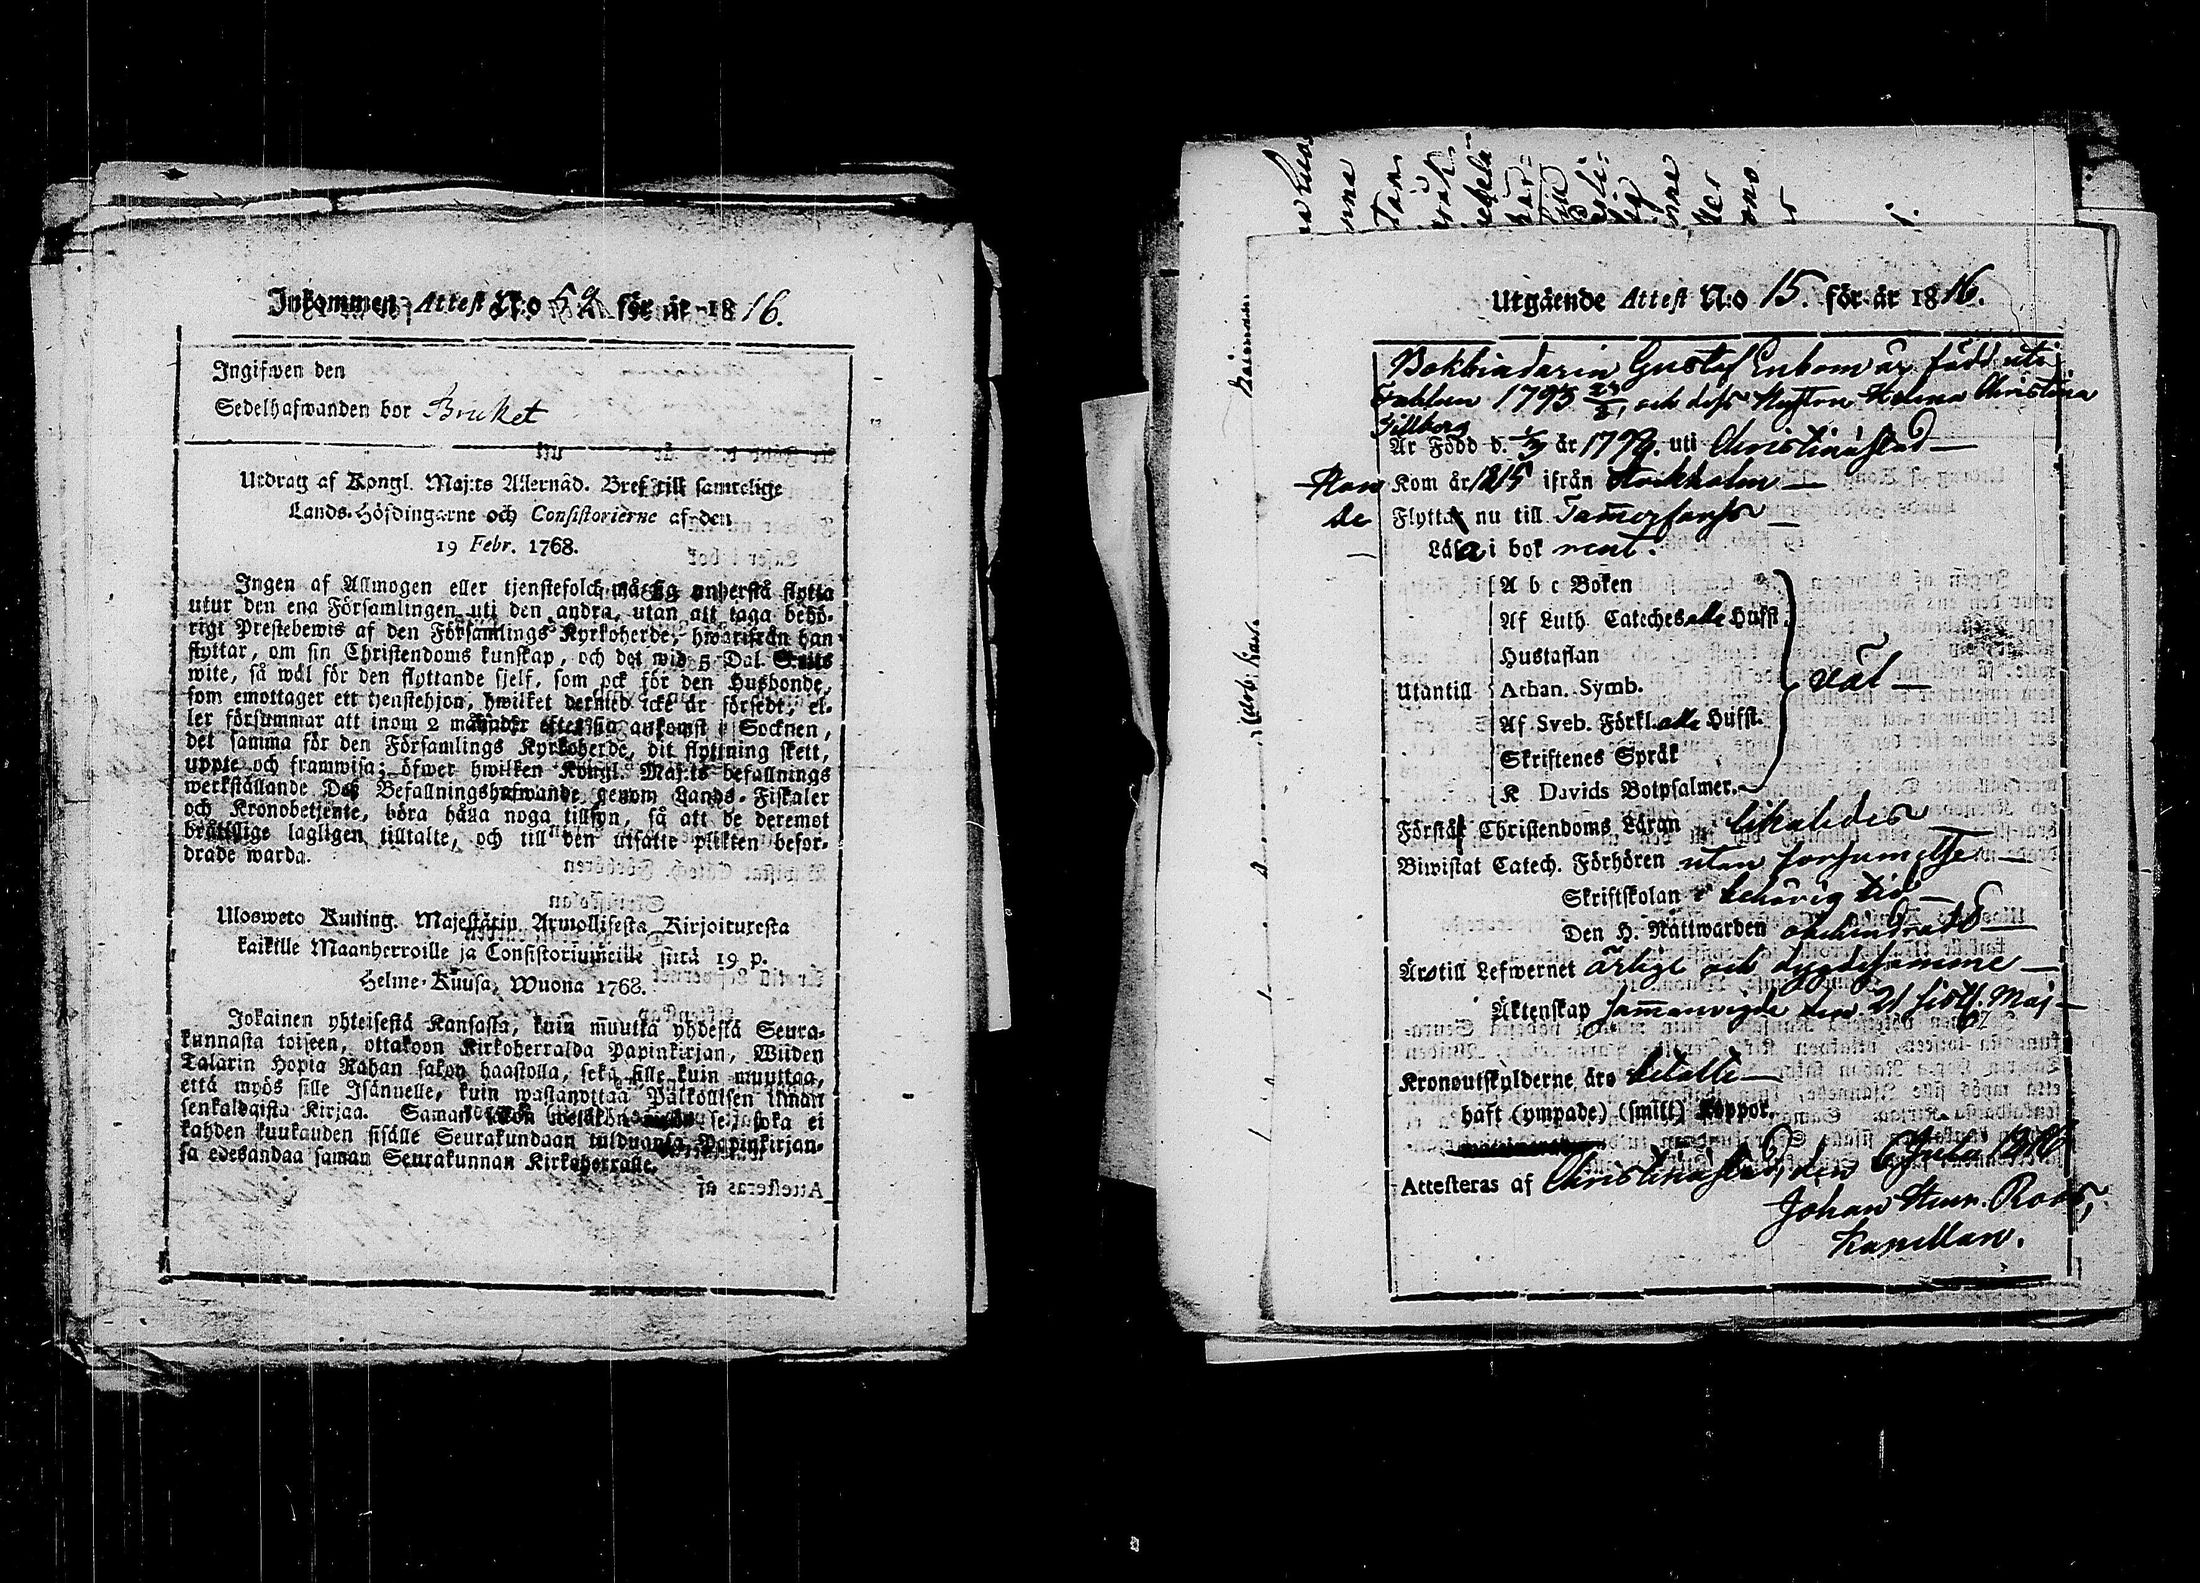 Inkommen Attest N:o 52 för år 1816.
Ingifwen den
Sedelhafwanden bor Bruket
Utdrag af Kongl. Maj:ts Allernåd. Bref till samtelige
Lands-Höfdingarne och Consistorierne af den
19 Febr. 1768.
Ingen af Allmogen eller tjenstefolck må sig understå flytta
utur den ena Församlingen uti den andra, utan att taga behö-
rigt Prestebewis af den Församlings Kyrkoherde, hwarifrån han
flyttar, om sin Christendoms kunskap, och det wid 5 Dal. S:mts
wite, så wäl för den flyttande sjelf, som ock för den Husbonde,
som emottager ett tjenstehjon, hwilket dermed icke är försedt, el-
ler försummar att inom 2 månader efter sin ankomst i Socknen,
det samma för den Församlings Kyrkoherde, dit flyttning skett,
uppte och framwisa; öfwer hwilken Kongl. Maj:ts befallnings
werkställande Des Befallningshafwande genom Lands-Fiskaler
och Kronobetjente, böra hålla noga tillsyn, så att de deremot
bråttslige lagligen tilltalte, och till den utsatte plikten befor-
drade warda.
Ulosweto Kuning. Majestätin Armollisesta Kirjoituxesta
kaikille Maanherroille ja Consistoriumeille siitä 19 p.
Helme-Kuusa, Wuona 1768.
Jokainen yhteisestä Kansasta, kuin muutta yhdestä Seura-
kunnasta toiseen, ottakoon Kirkoherralda Papinkirjan, Wiiden
Talarin Hopia Rahan sakon haastolla, sekä sille kuin muuttaa,
että myös sille Isännelle, kuin wastanottaa Palkollisen ilman
senkaldaista Kirjaa. Saman sakon wetäkön se joka ei
kahden kuukauden sisälle Seurakundaan tulduansa Papinkirjan-
sa edesandaa saman Seurakunnan Kirkoherralle.
Utgående Attest N:o 15. för år 1816.
Bokbindaren Gustaf Enbom är född uti
1793 och dess Hustru Helena Christina
Tillberg
Är Född d. år 1779. uti Christinæstad
Kom år 1815 ifrån Stockholm
Flytta nu till Tammerforss
Läsa i bok rent.
Utantill
A b c Boken
Af Luth Cateches alla Hufst.
Hustaflan
Athan. Symb.
Af Sveb. Förkl. alla Hufst.
Skriftenes Språk
K Davids Botpsalmer.
väl
Förstå Christendoms Läran likaledes
Biwistat Catech. Förhören utan försummelse
Skriftskolan i behörig tid
Den H. Nattwarden ohindrade
Äro till Lefwernet ärlige och dygdesamme
Äktenskap sammanvigde den 21 sistl. Maj
Kronoutskylderne äro betalte
haft (ympade) (smitt) Koppor.
Attesteras af Christinæstad, den 6 Julii 1816
Johan Henr. Roos,
Kapellan.